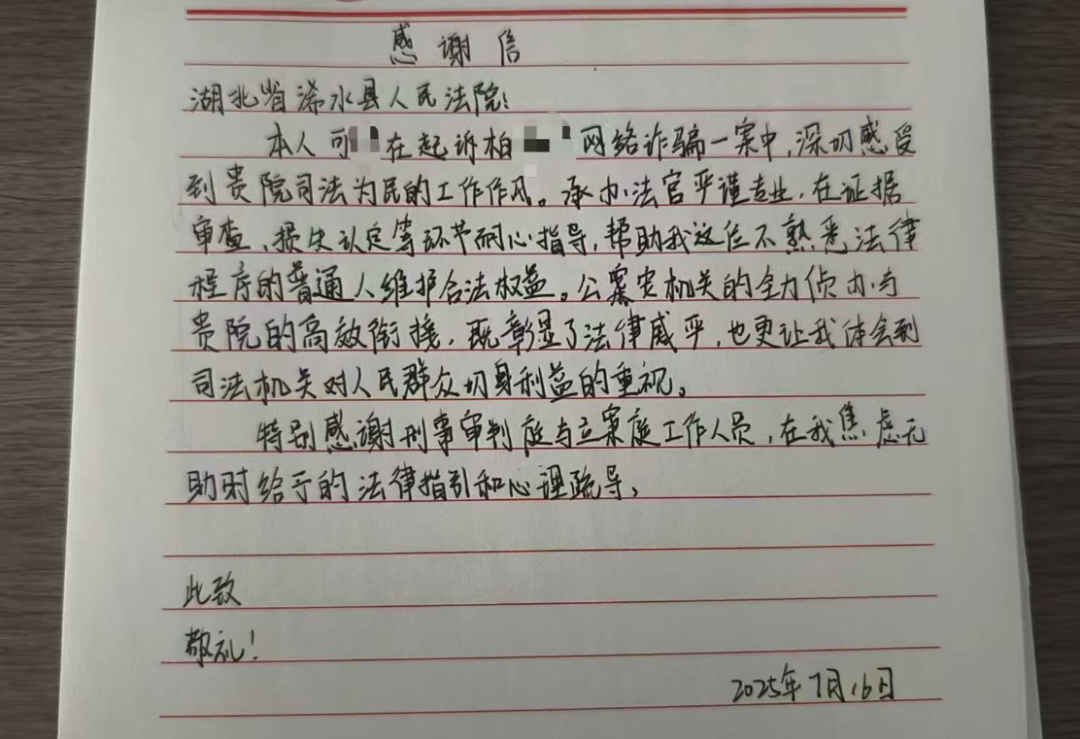 感谢信
湖北省浠水县人民法院:
本人可 在起诉柏 网络诈骗一案中,深切感受
到贵院司法为民的工作作风。承办法官严谨专业,在证据
审查、损失认定等环节耐心指导,帮助我这位不熟悉法律
程序的普通人维护合法权益。公安机关的全力侦办与
贵院的高效衔接,既彰显了法律威严,也更让我体会到
司法机关对人民群众切身利益的重视。
特别感谢刑事审判庭与立案庭工作人员,在我焦虑无
助时给予的法律指引和心理疏导,
此致
敬礼!
2025年7月16日